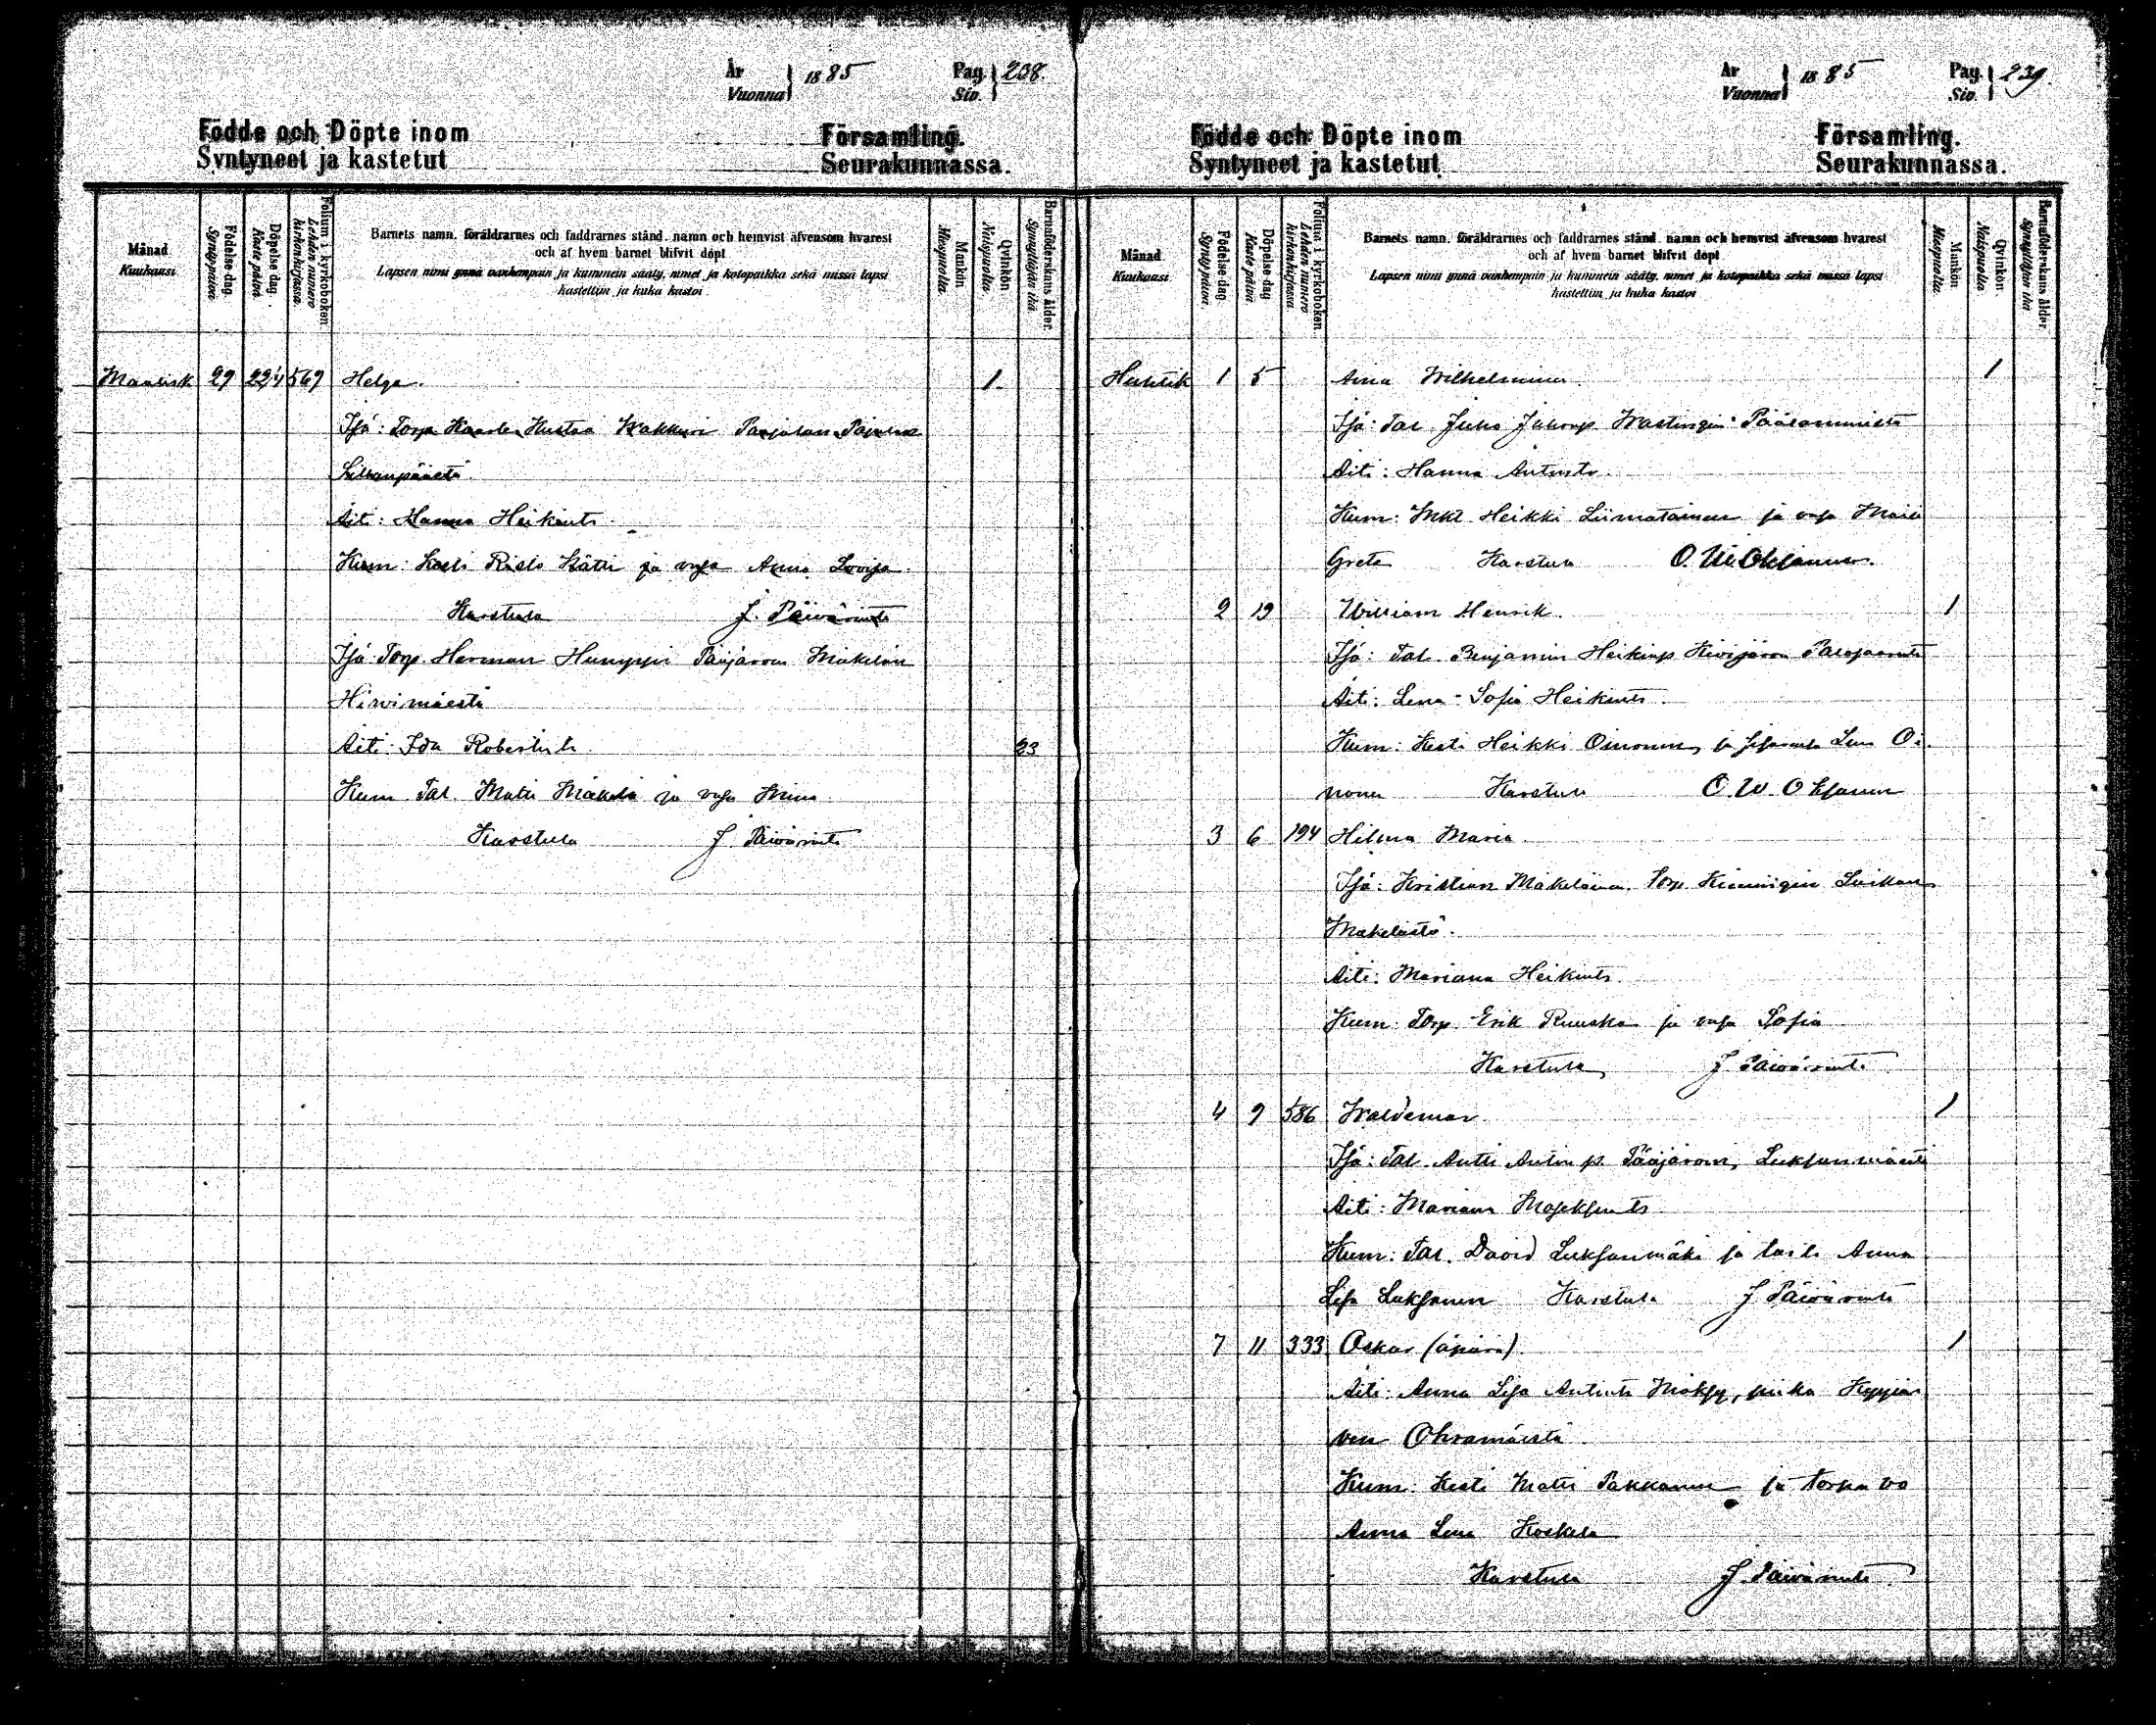 År
Vuonna 1885
Pag.
Siv. 238.
Födde och Döpte inom Församling.
Syntyneet ja kastetut Seurakunnassa.
Månad
Kuukausi
Födelse-dag.
Syntypäivä
Döpelse-dag.
Kaste päivä
Folium i kyrkoboken.
Lehden numero kirkonkirjassa.
Barnets namn, föräldrarnes och faddrarnes stånd, namn och hemvist äfvensom hvarest
och af hvem barnet blifvit döpt
Lapsen nimi ynnä vanhempain ja kummein sääty, nimet ja kotopaikka sekä missä lapsi
kastettiin ja kuka kastoi
Mankön
Miespuolia.
Qvinkön
Naispuolia.
Barnföderskans ålder.
Synnyttäjän ikä
Maalisk 29 22/4 569 Helga. 1.
Isä: Torp. Kaarle Kustaa Pääjärven
Sillanpäästä.
Äiti: Hanna Heikints.
Kum: Kesti Risto Kätti ja vaja Anna Lovisa
Karstula J. Päivärinta
Isä Torp. Herman Humppi Pääjärven Mäkelän
Hirvimäestä
Äiti Ida Robertints 23
Kum Tal. Matti Mäkelä ja vaja Miina
Karstula J. Päivärinta
År
Vuonna 1885
Pag.
Siv. 239.
Födde och Döpte inom Församling.
Syntyneet ja kastetut Seurakunnassa.
Månad
Kuukausi
Födelse-dag.
Syntypäivä.
Döpelse-dag
Kaste päivä.
Folium i kyrkoboken.
Lehden numero kirkonkirjassa.
Barnets namn, föräldrarnes och faddrarnes stånd, namn och hemvist äfvensom hvarest
och af hvem barnet blifvit döpt
Lapsen nimi ynnä vanhempain ja kummein sääty, nimet ja kotopaikka sekä missä lapsi
kastettiin ja kuka kastoi
Mankön
Miespuolia.
Qvinkön.
Naispuolia
Barnföderskans ålder.
Synnyttäjän ikä
Huhtik 1 5 Aina Wilhelmina. 1
Isä: Tal. Juho Jakonp. Wastingin
Äiti: Hanna Antints.
Kum: Heikki Liimatainen ja vaja Maija
Greta Karstula O. W. Oksanen.
2 19 William Henrik. 1
Isä: Tal. Benjamin Heikinp. Kivijärven
Äiti: Lena Sofia Heikints.
Kum: Kesti Heikki Oinonen, ja Lena Oi-
nonen Karstula O. W. Oksanen
3 6 194 Hilma Maria.
Isä: Kristian Mäkeläinen. Torp. Kimingin
Mäkelästä.
Äiti: Mariana Heikints.
Kum: Torp. Erik Ruuska ja vaja Sofia
Karstula J. Päivärinta.
4 9 586 Waldemar 1
Isä: Tal. Antti Antin p. Pääjärven, Luksanmäestä
Äiti: Mariana
Kum: Tal. David Luksanmäki ja Anna
Lisa Luksanen Karstula J. Päivärinta
7 11 333 Oskar (äpärä) 1
Äiti: Anna Lisa Antints piika Kyyjär
ven Ohramäestä
Kum: Kesti Matti Pakkanen ja torpan vo
Anna Lena Koskela
Karstula J. Päivärinta.